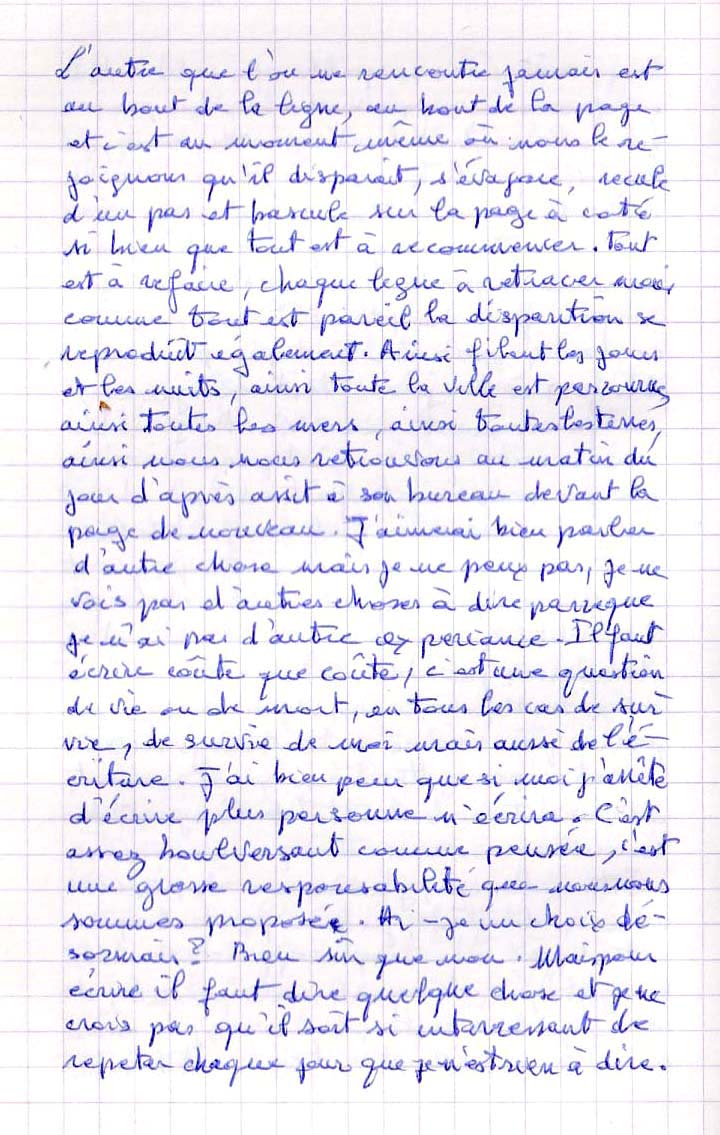 L'autre que l'on ne rencontre jamais est
au bout de la ligne, au bout de la page
et c'est au moment même où nous le re-
joignons qu'il disparait, s'évapore, recule
d'un pas et bascule sur la page à coté
si bien que tout est à recommencer. Tout
est à refaire, chaque ligne à retracer mais
comme tout est pareil la disparition se
reproduit également. Ainsi filent les jours
et les nuits, ainsi toute la ville est parcourue,
ainsi toutes les mers, ainsi toutes les terres,
ainsi nous nous retrouvons au matin du
jour d'après assit à son bureau devant la
page de nouveau. J'aimerai bien parler
d'autre chose mais je ne peux pas, je ne
vois pas d'autres choses à dire parceque
je n'ai pas d'autre experiance. Il faut
écrire coûte que coûte, c'est une question
de vie ou de mort, en tous les cas de sur-
vie, de survie de moi mais aussi de l'é-
criture. J'ai bien peur que si moi j'arrête
d'écrire plus personne n'écrira. C'est
assez boulversant comme pensée, c'est
une grosse responsabilité que nous nous
sommes proposée. Ai-je un choix dé-
sormais? Bien sûr que non. Mais pour
écrire il faut dire quelque chose et je ne
crois pas qu'il soit si interressant de
repeter chaque jour que je n'est rien à dire.